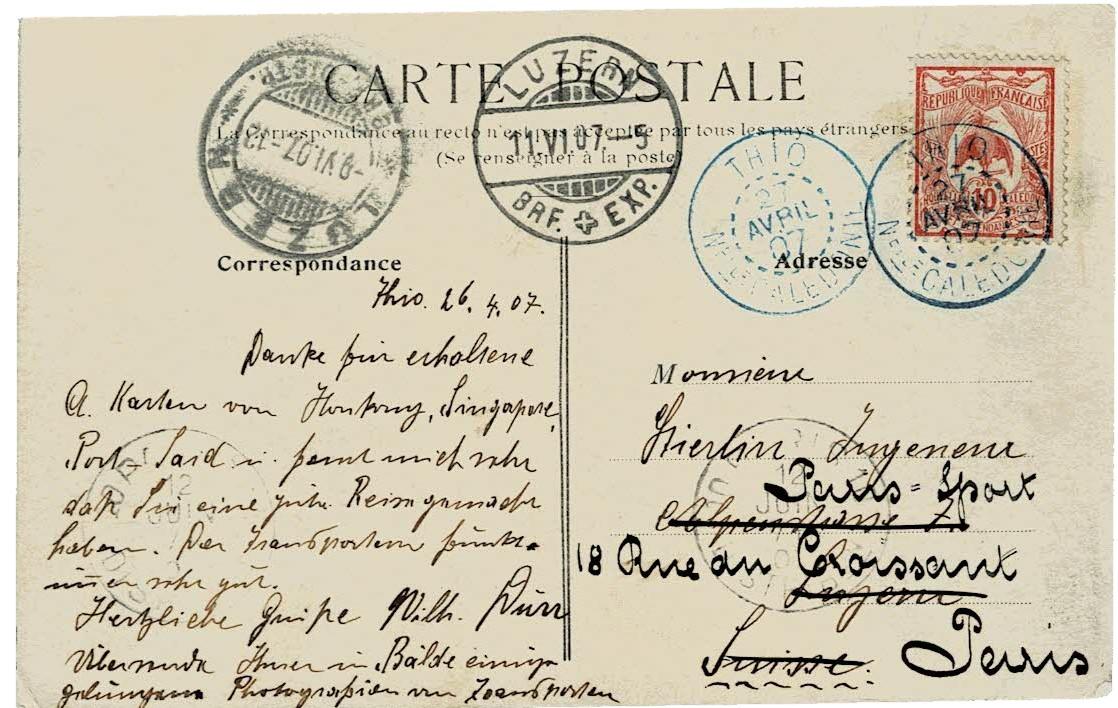 CARTE POSTALE
La Correspondance au recto n'est pas acceptée par tous les pays étrangers
(Se renseigner à la poste)
LUZERN
-9.VI.07.-22
LUZERN
11.VI.07.-5
BRF. EXP.
THIO
27
AVRIL
07
Nlle CALEDONIE
REPUBLIQUE FRANÇAISE
POSTES
10
THIO
27
AVRIL
07
Nlle CALEDONIE
Correspondance
Thio. 26. 4. 07.
Danke für erhaltene
A. Karten von Honkong, Singapore,
Port Said u. freut mich sehr
daß Sie eine gute Reise gemacht
haben. Der Transporteur funkt-
sehr gut.
Herzliche Grüße Wilh. Dürr
Ihnen in Bälde einige
gelungene Photografien von Transporteuren
Adresse
Monsieur
Stierlin Ingenieur
Paris = Sport
Alpenstrasse 7.
18 Rue du Croissant
Luzern
Suisse.
Paris
PARIS
12